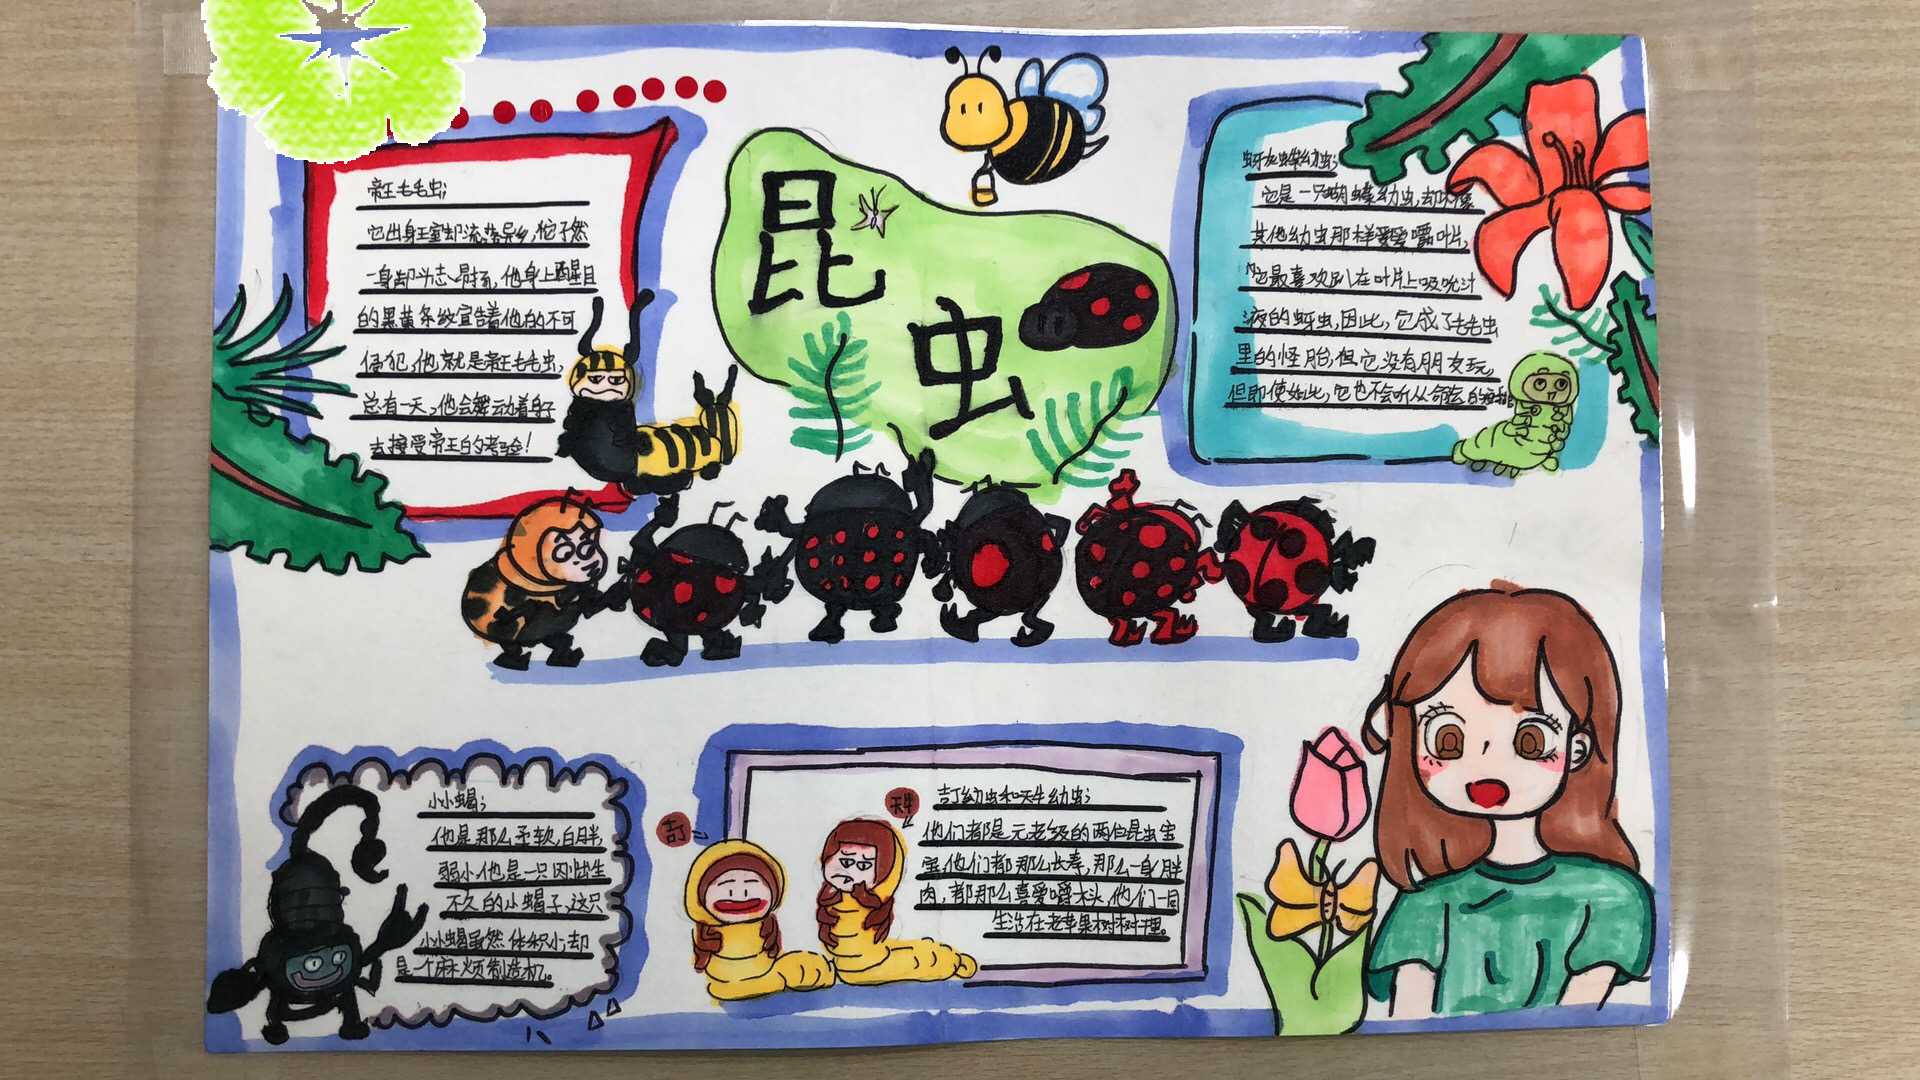 昆虫
帝王毛毛虫;
它出身王室却流落异乡,他孑然
一身却斗志昂扬,他身上醒目
的黑黄条纹宣告着他的不可
侵犯,他就是帝王毛毛虫,
总有一天,他会舞动着身子
去接受帝王的考验!
蚜灰蝶幼虫;
它是一只蝴蝶幼虫,却不像
其他幼虫那样爱爱嚼叶片,
它最喜欢趴在叶片上吸吮汁
液的蚜虫,因此,它成了毛毛虫
里的怪胎,但它没有朋友玩,
但即使如此,它也不会听从命运的安排
小小蝎;
他是那么柔软,白胖,
弱小,他是一只刚出生
不久的小蝎子,这只
小小蝎虽然体积小,却
是一个麻烦制造机。
吉丁
天牛
吉丁幼虫和天牛幼虫;
他们都是元老级的两位昆虫宝
宝,他们都那么长寿,那么一身胖
肉,都那么喜爱嚼木头,他们一同
生活在老苹果树树干里。